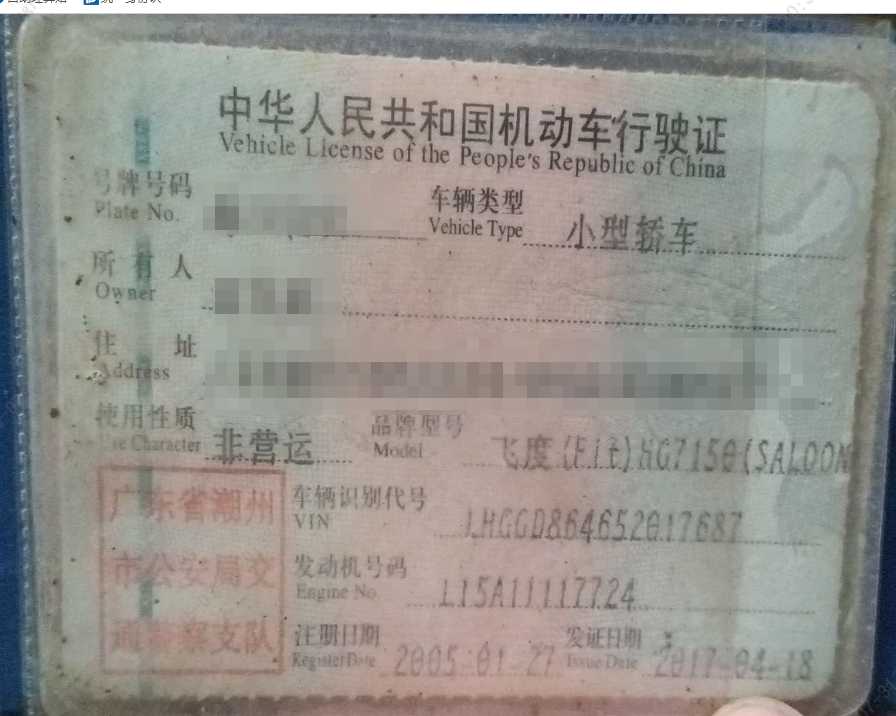 中华人民共和国机动车行驶证
Vehicle License of the People's Republic of China
号牌号码
Plate No.
车辆类型
Vehicle Type
小型轿车
所有人
Owner
住址
Address
使用性质
Use Character
非营运
品牌型号
Model
飞度(Fit)HG7150(SALOON
广东省潮州
市公安局交
通警察支队
车辆识别代号
VIN
LHGGD864652017687
发动机号码
Engine No.
L15A11117724
注册日期
Register Date
2005-01-27
发证日期
Issue Date
2017-04-18